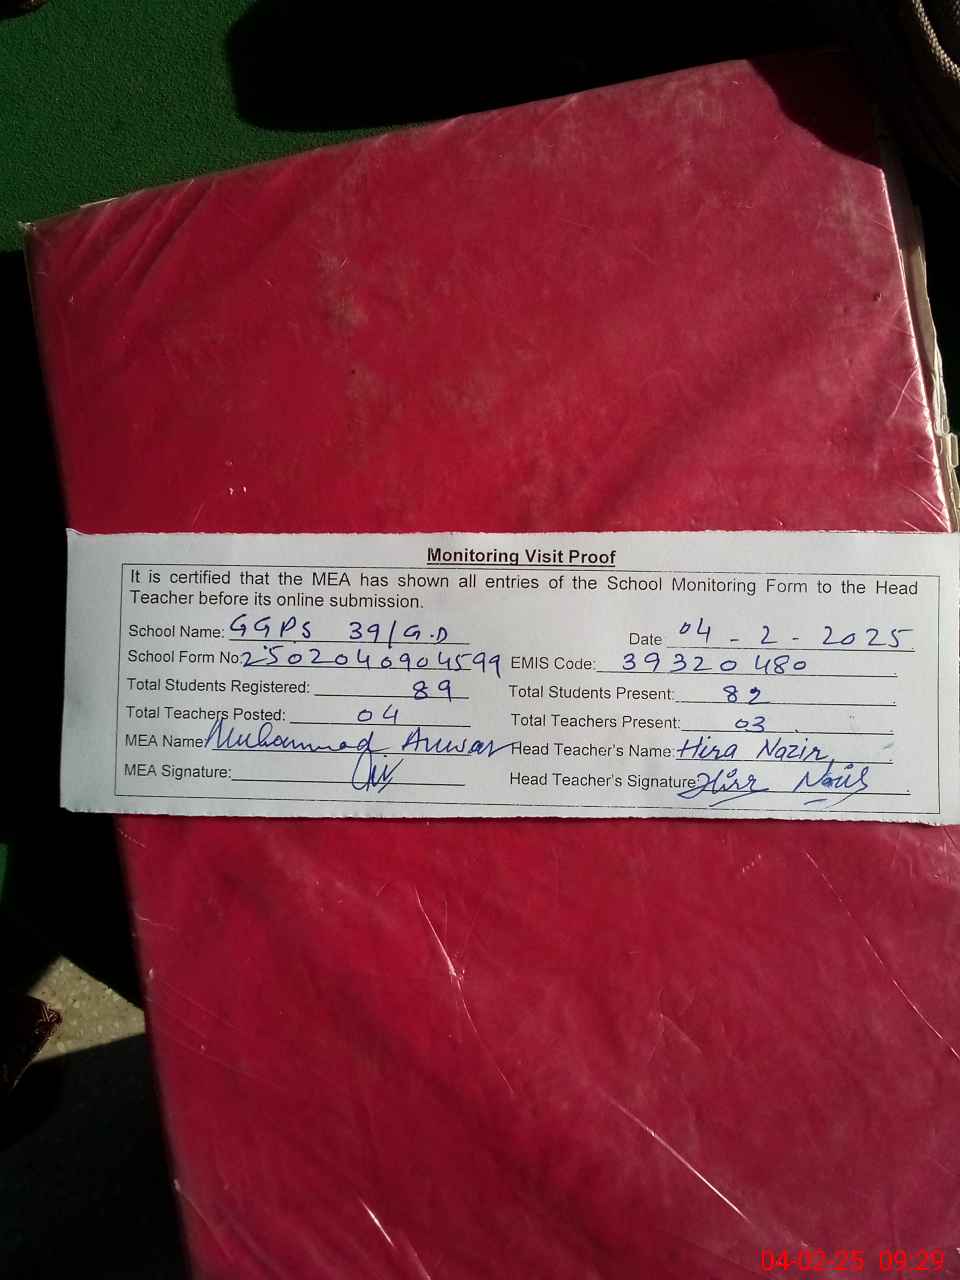 Monitoring Visit Proof
It is certified that the MEA has shown all entries of the School Monitoring Form to the Head
Teacher before its online submission.
School Name: GGPS 39/G.D Date 04 - 2 - 2025
School Form No: 2502040904599 EMIS Code: 39320480
Total Students Registered: 89 Total Students Present: 82
Total Teachers Posted: 04 Total Teachers Present: 03
MEA Name: Muhammad Anwar Head Teacher's Name: Hira Nazir
MEA Signature: Head Teacher's Signature
04-02-25 09:29